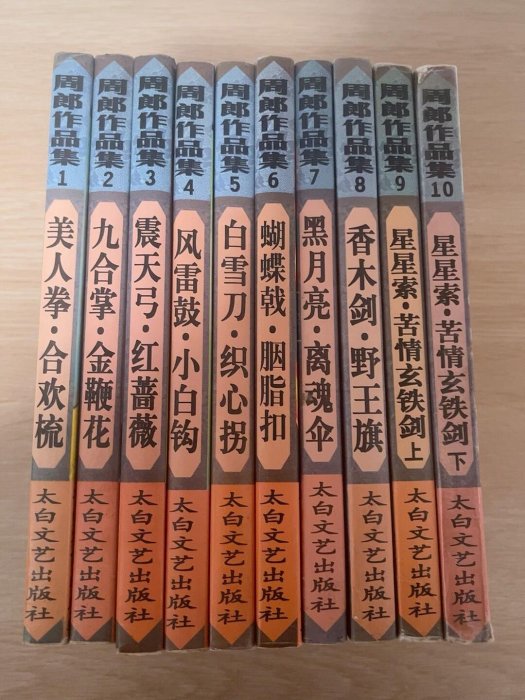 周郎作品集 1
美人拳·合欢梳
太白文艺出版社
周郎作品集 2
九合掌·金鞭花
太白文艺出版社
周郎作品集 3
震天弓·红蔷薇
太白文艺出版社
周郎作品集 4
风雷鼓·小白钩
太白文艺出版社
周郎作品集 5
白雪刀·织心拐
太白文艺出版社
周郎作品集 6
蝴蝶戟·胭脂扣
太白文艺出版社
周郎作品集 7
黑月亮·离魂伞
太白文艺出版社
周郎作品集 8
香木剑·野王旗
太白文艺出版社
周郎作品集 9
星星索·苦情玄铁剑 上
太白文艺出版社
周郎作品集 10
星星索·苦情玄铁剑 下
太白文艺出版社